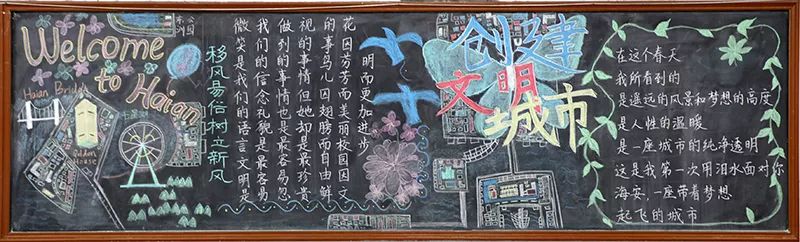 Welcome
to Haian
Haian Bridge
Golden House
公园
移风易俗树立新风
微笑是我们的语言文明是
我们的信念礼貌是最容易
做到的事情也是最容易忽
视的事情但她却是最珍贵
的事鸟儿因翅膀而自由鲜
花因芬芳而美丽校园因文
明而更加进步
创建
文明
城市
在这个春天
我所看到的
是遥远的风景和梦想的高度
是人性的温暖
是一座城市的纯净透明
这是我第一次用泪水面对你
海安,一座带着梦想
起飞的城市